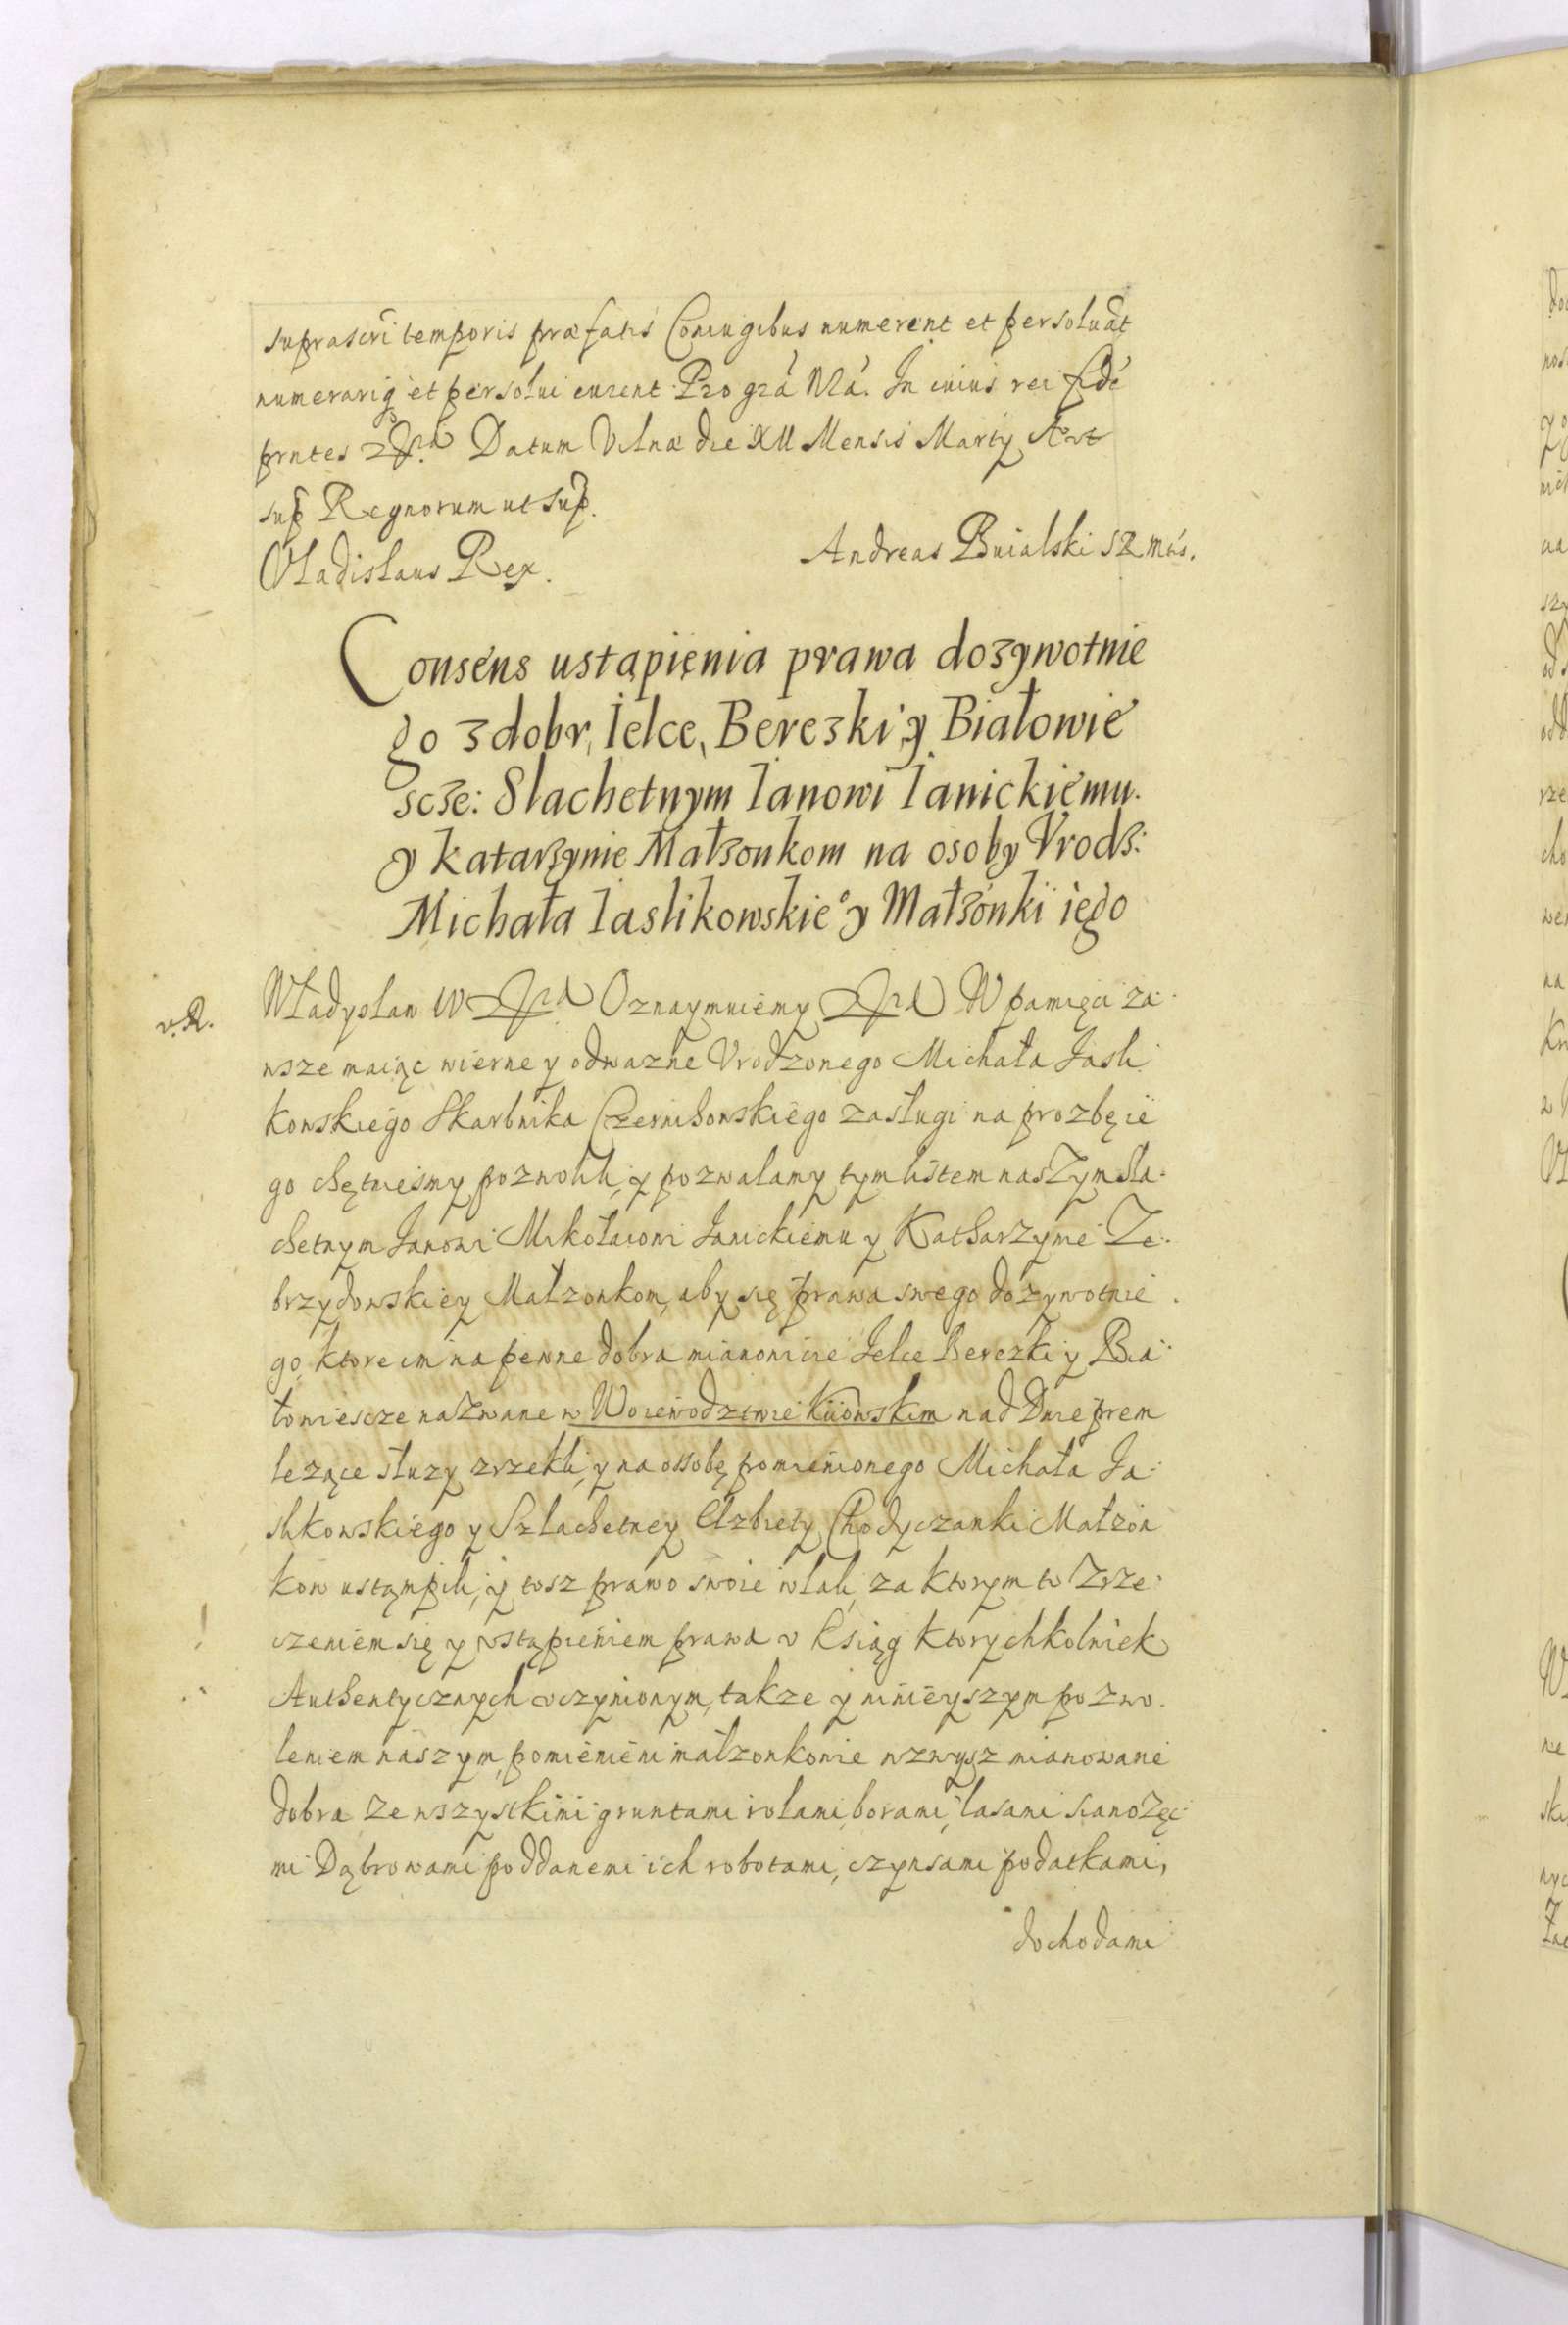 suprascri temporis præfatis Coniugibus numerent et persoluāt
numerariq et persolui curent Pro gra Nra. In cuius rei fidē
prntes Datum Vilnæ die XII Mensis Marty Ao ut
sup Regnorum ut sup.
Vladislaus Rex.
Andreas Buialski SRMtis.
Consens ustąpięnia prawa dozywotnie
go z dobr, Ielce, Berezki, y Białowie
scze: Slachetnym Ianowi Ianickiemu.
y katarzynie Małzonkom na osoby Vrodz:
Michała Iaslikowskie° y Małzonki iego
v.R.
Władysław IV Oznaymuiemy W pamięci za
wsze maiąc wierne y odwazne Vrodzonego Michała Jasli
kowskiego Skarbnika Czernihowskiego zasługi na prozbę ie
go chętniesmy pozwolili, y pozwalamy tym listem naszym Sla
chetnym Janowi Mikołaiowi Janickiemu y Katharzynie Ze
brzydowskiey Małzonkom, aby się prawa swego dozywotnie
go, ktore im na pewne dobra mianowicie Jelce Berezki y Bia
łowiescze nazwane w Woiewodztwie Kiiowskim nad Dnieprem
lezące słuzy zrzekli, y na osobę pomienionego Michała Ja
slikowskiego y Szlachetney Elzbiety Chodyczanki Małzon
kow ustąmpili, y tosz prawo swoie wlali, za ktorym to Zrze
czeniem się y vstąpieniem prawa v Ksiąg ktorychkolwiek
Authentycznych vczynionym, takze y ninieyszym pozwo
leniem naszym, pomienieni małzonkowie wzwysz mianowane
dobra ze wszystkimi gruntami rolami, borami, lasami sianozęci
mi Dąbrowami poddanemi ich robotami, czynsami podatkami,
dochodami